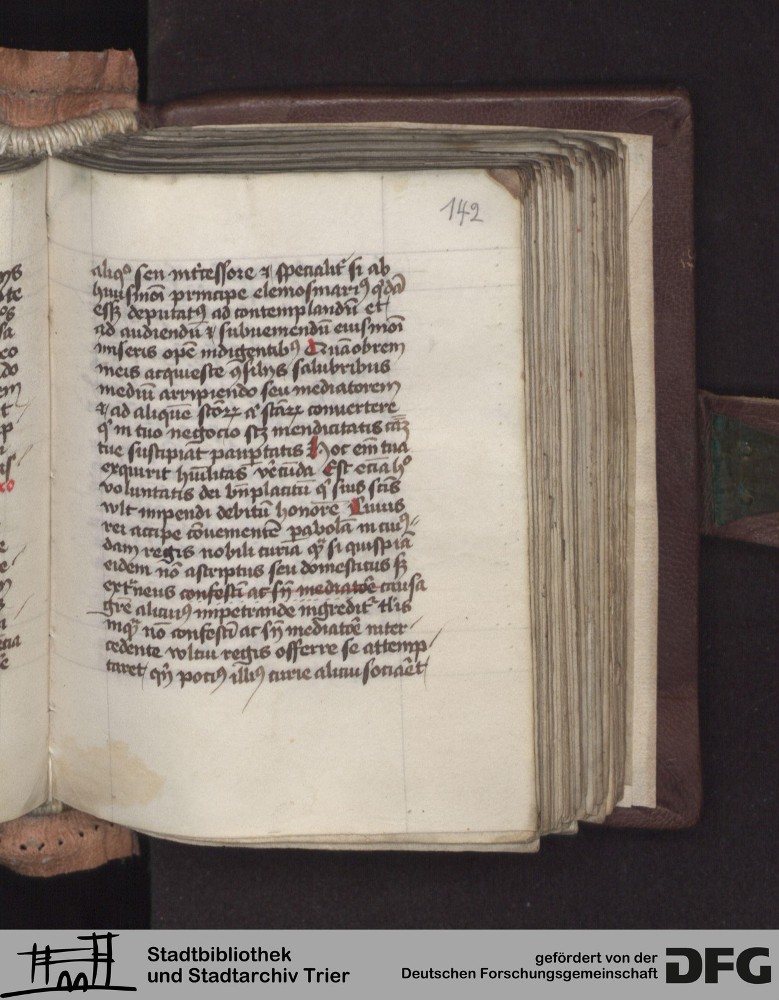 142
aliqo seu int̄cessore ⁊ specialit̄ si ab
huiusmōi principe elemosinariꝰ q̄dā
esset deputatꝰ ad contemplandū et
ad audiendū ⁊ subueniendū eiusmōi
miseris opē indigentibꝰ Quāobrem
meis acquiesce ꝯsilijs salubribus
mediū arripiendo seu mediatorem
⁊ ad aliquē sc̄oꝝ aꝉ sc̄aꝝ conuertere
qͥ in tuo negocio scꝫ mendicitatis
tue suscipiat paup̄tatis Hoc em̄ tua
exquirit hūilitas v̄ecūda Est eciā hͦ
voluntatis dei bn̄placitū qͥ suis sc̄is
wlt impendi debitū honorē Cuius
rei accipe cōuenientē ꝑabolā in cuiꝰ-
dam regis nobili curia qͥ si quispiā
eidem nō ascriptus seu domesticus sꝫ
ext̄neus confestī ac sn̄ mediatōe causa
gr̄e alicuiꝰ impetrande ingredit̄ tl̄is
inqͣ nō confestī ac sn̄ mediatōe inter
cedente wltui regis offerre se attemp
taret qn̄ pociꝰ illiꝰ curie alicui sociaēt
Stadtbibliothek
und Stadtarchiv Trier
gefördert von der
Deutschen Forschungsgemeinschaft
DFG